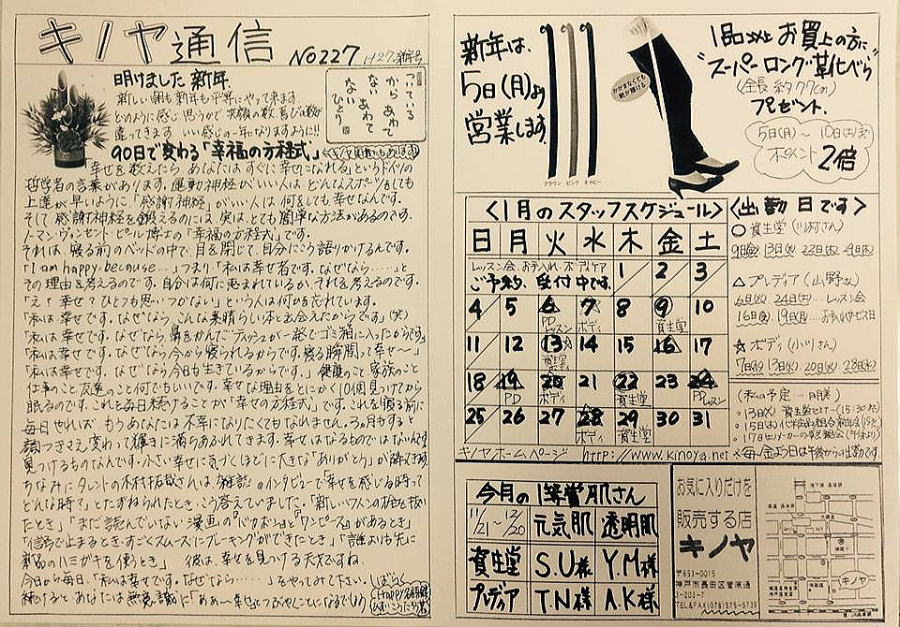 キノヤ通信 No227 H27.新年号
明けました 新年
新しい朝も新年も平等にやって来ます
どのように感じ思うかで笑顔の数、喜びの数が
違ってきます いい感じの一年になりますように!!
90日で変わる「幸福の方程式」
「幸せを数えたら、あなたはすぐに幸せになれる」というドイツの
哲学者の言葉があります。運動神経がいい人は、どんなスポーツをしても
上達が早いように、「感謝神経」がいい人は、何をしても幸せなんです。
そして感謝神経を鍛えるのには、実はとても簡単な方法があるのです。
ノーマン・ヴィンセント・ピール博士の「幸福の方程式」です。
それは、寝る前のベッドの中で、目を閉じて、自分にこう語りかけるんです。
「I am happy, because…」つまり「私は幸せ者です。なぜなら……」と
その理由を考えるのです。自分は何に恵まれているか、それを考えるのです。
「え?幸せ?ひとつも思いつかない」という人は何かを忘れています。
「私は幸せです。なぜなら、こんな素晴らしい本と出会えたからです」(笑)
「私は幸せです。なぜなら、鼻をかんだティッシュが一発でゴミ箱に入ったからです」
「私は幸せです。なぜなら今から寝られるからです。寝る瞬間って幸せ〜」
「私は幸せです。なぜなら今日も生きているからです」。健康のこと 家族のこと
仕事のこと 友達のこと何でもいいです。幸せな理由をとにかく10個見つけてから
眠るのです。これを毎日続けることが「幸せの方程式」です。これを寝る前に
毎日やれば、もうあなたは不幸になりたくてもなれません。3ヵ月もすると
顔つきさえ変わって輝きに満ちあふれてきます。幸せはなるものではないんです
見つけるものなんです。小さい幸せに気づくほどに大きな「ありがとう」が
ちなみにタレントの木村拓哉さんは、雑誌のインタビューで「幸せを感じる時って
どんな時?」とたずねられたとき、こう答えていました。「新しいワインの栓を抜い
たとき」「まだ読んでいない漫画の『バガボンド』と『ワンピース』があるとき」
「信号で止まるとき、すごくスムーズにブレーキングができたとき」「誰よりも先に
新品のハミガキを使うとき」 彼は、幸せを見つける天才ですね。
今日から毎日、「私は幸せです。なぜなら……」をやってみて下さい。しばらく
続けるとあなたは無意識に「ああ〜幸せ」とつぶやくことになるでしょう
新年は、
5日(月)より
営業します。
ブラウン ピンク ネイビー
1品以上お買上の方に
"スーパーロング靴べら"
(全長約77cm)
プレゼント。
5日(月)〜10日(土)まで
ポイント2倍
〈1月のスタッフスケジュール〉
日 月 火 水 木 金 土
レッスン会、お手入れ、ボディケア
ご予約、受付中です。
1 2 3
4 5 6 7 8 9 10
PDレッスン ボディ 資生堂
11 12 13 14 15 16 17
資生堂
18 19 20 21 22 23 24
PD ボディ 資生堂 PDレッスン
25 26 27 28 29 30 31
ボディ 資生堂
キノヤホームページ http://www.kinoya.net
〈出勤日です〉
○資生堂
9日(金) 13日(火) 22日(木) 29日(木)
△プレディア(山野)
6日(火) 24日(土)…レッスン会
16日(金)、19日(月)…お手入れサービス日
☆ボディ(小川さん)
7日(水) 13日(火) 20日(火) 28日(水)
(私の予定)
・13日(火) 資生堂セミナー(15:30迄)
※毎/金よう日は午後からの出勤です
今月の1等賞肌さん
11/21〜12/20 元気肌 透明肌
資生堂 S.U様 Y.M様
プレディア T.N様 A.K様
お気に入りだけを
販売する店
キノヤ
〒653-0015
神戸市長田区菅原通
3-203-7
TEL&FAX(078)575-5735
キノヤ